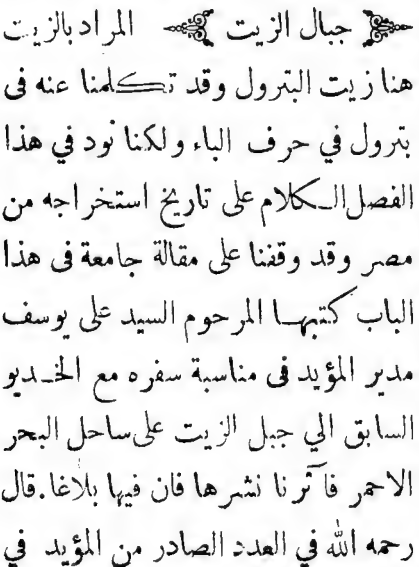 جبال الزيت المراد بالزيت
هنا زيت البترول وقد تكلمنا عنه فى
بترول في حرف الباء ولكنا نود في هذا
الفصل الكلام على تاريخ استخراجه من
مصر وقد وقفنا على مقالة جامعة فى هذا
الباب كتبها المرحوم السيد على يوسف
مدير المؤيد فى مناسبة سفره مع الخديو
السابق الي جبل الزيت على ساحل البحر
الاحمر فآثرنا نشرها فان فيها بلاغا. قال
رحمه الله في العدد الصادر من المؤيد في